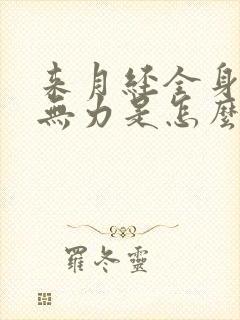 来月经全身
無力是怎麼
羅冬靈